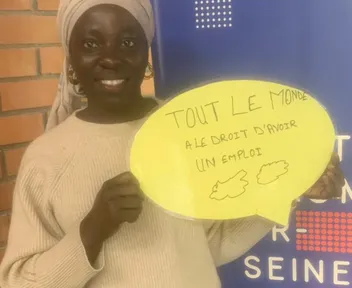 TOUT LE MONDE
A LE DROIT D'AVOIR
UN EMPLOI
SEINE